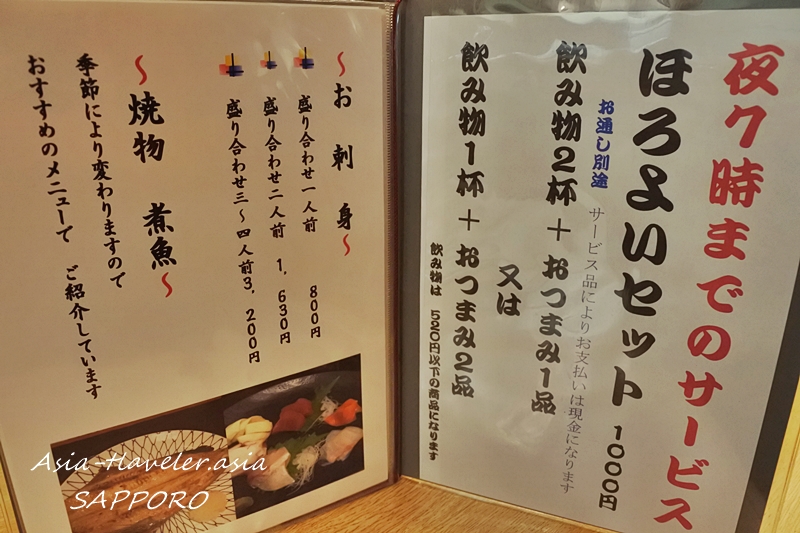 夜7時までのサービス
ほろよいセット 1000円
お通し別途 サービス品によりお支払いは現金になります
飲み物2杯+おつまみ1品
又は
飲み物1杯+おつまみ2品
飲み物は 520円以下の商品になります
~お刺身~
盛り合わせ一人前 800円
盛り合わせ二人前 1,630円
盛り合わせ三~四人前3,200円
~焼物 煮魚~
季節により変わりますので
おすすめのメニューで ご紹介しています
Asia-Traveler.asia
SAPPORO